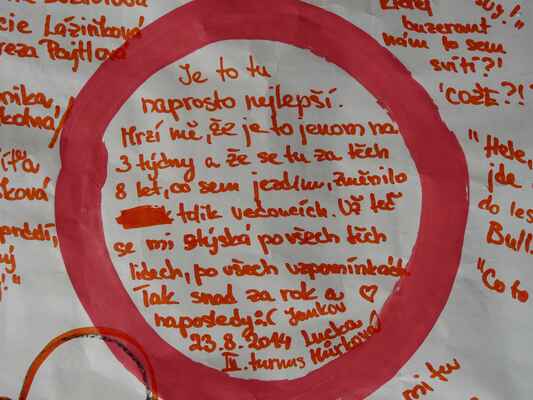 cie Lážinková
reza Pajtlová
buzerant
nám to sem
svítí?!
'COŽE?!
Je to tu
naprosto nejlepší.
Mrzí mě, že je to jenom na
3 týdny a že se tu za těch
8 let, co sem jezdím, změnilo
tolik vedoucích. Už teď
se mi stýská po všech těch
lidech, po všech vzpomínkách.
Tak snad za rok a
naposledy :( Jenkov ♡
23.8.2014 Lucka
III. turnus Hůrková
nika,
ková
"Hele,
jde
do les
Bull
"Co to
mi tu